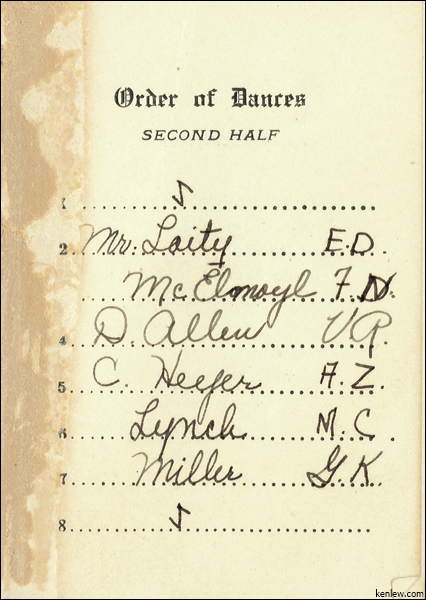 Order of Dances
SECOND HALF
1
2 Mr. Laity E.D.
McElmoyl F.N.
4 D. Allen V.R.
5 C. Heeger A.Z.
6 Lynch M.C.
7 Miller G.K.
8
kenlew.com